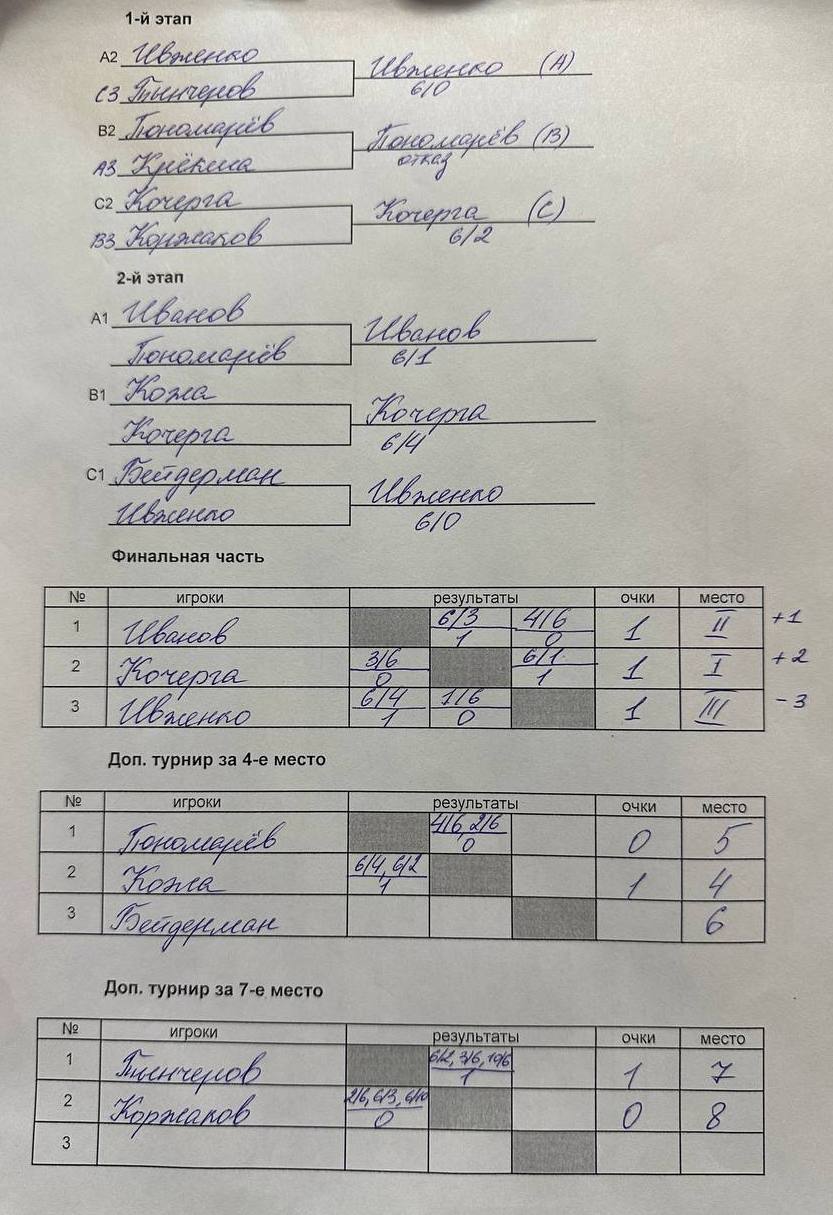 1-й этап
A2 Ивженко
Ивженко (A)
C3 Тынчеров
6/0
B2 Пономарёв
Пономарёв (B)
A3 Крёкина
отказ
C2 Кочерга
Кочерга (C)
B3 Коржаков
6/2
2-й этап
A1 Иванов
Иванов
Пономарёв
6/1
B1 Кожа
Кочерга
Кочерга
6/4
C1 Бейдерман
Ивженко
Ивженко
6/0
Финальная часть
№ игроки результаты очки место
1 Иванов 6/3 1 4/6 0 1 II +1
2 Кочерга 3/6 0 6/1 1 1 I +2
3 Ивженко 6/4 1 1/6 0 1 III -3
Доп. турнир за 4-е место
№ игроки результаты очки место
1 Пономарёв 4/6, 2/6 0 0 5
2 Кожа 6/4, 6/2 1 1 4
3 Бейдерман 6
Доп. турнир за 7-е место
№ игроки результаты очки место
1 Тынчеров 6/2, 3/6, 10/6 1 1 7
2 Коржаков 2/6, 6/3, 6/10 0 0 8
3